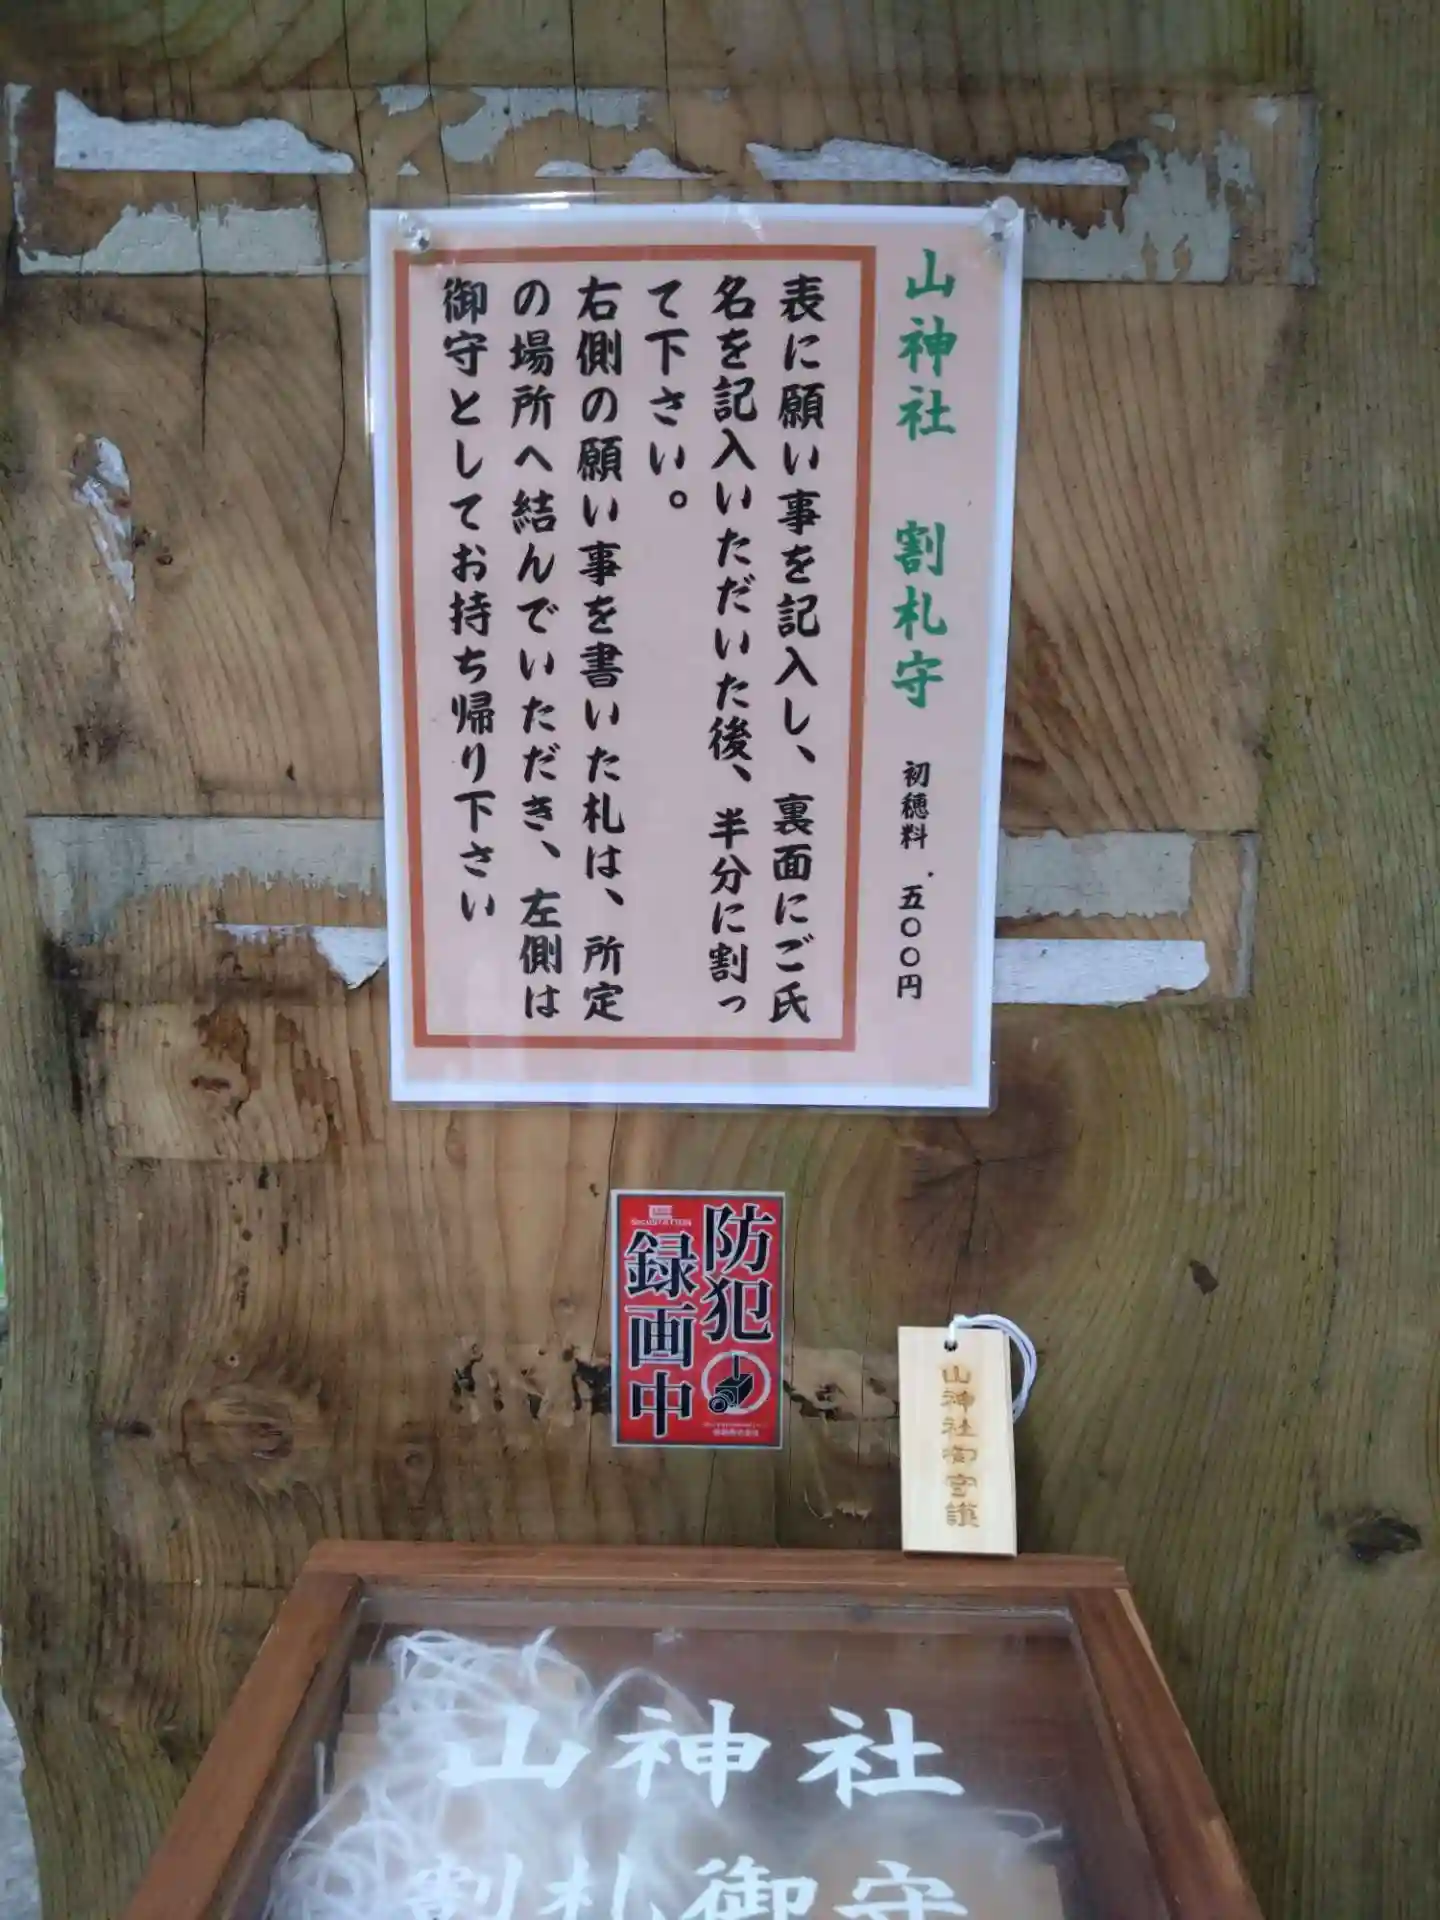 山神社 割札守 初穂料 五〇〇円
表に願い事を記入し、裏面にご氏
名を記入いただいた後、半分に割っ
て下さい。
右側の願い事を書いた札は、所定
の場所へ結んでいただき、左側は
御守としてお持ち帰り下さい
防犯
録画中
山神社御守護
山神社
割札御守